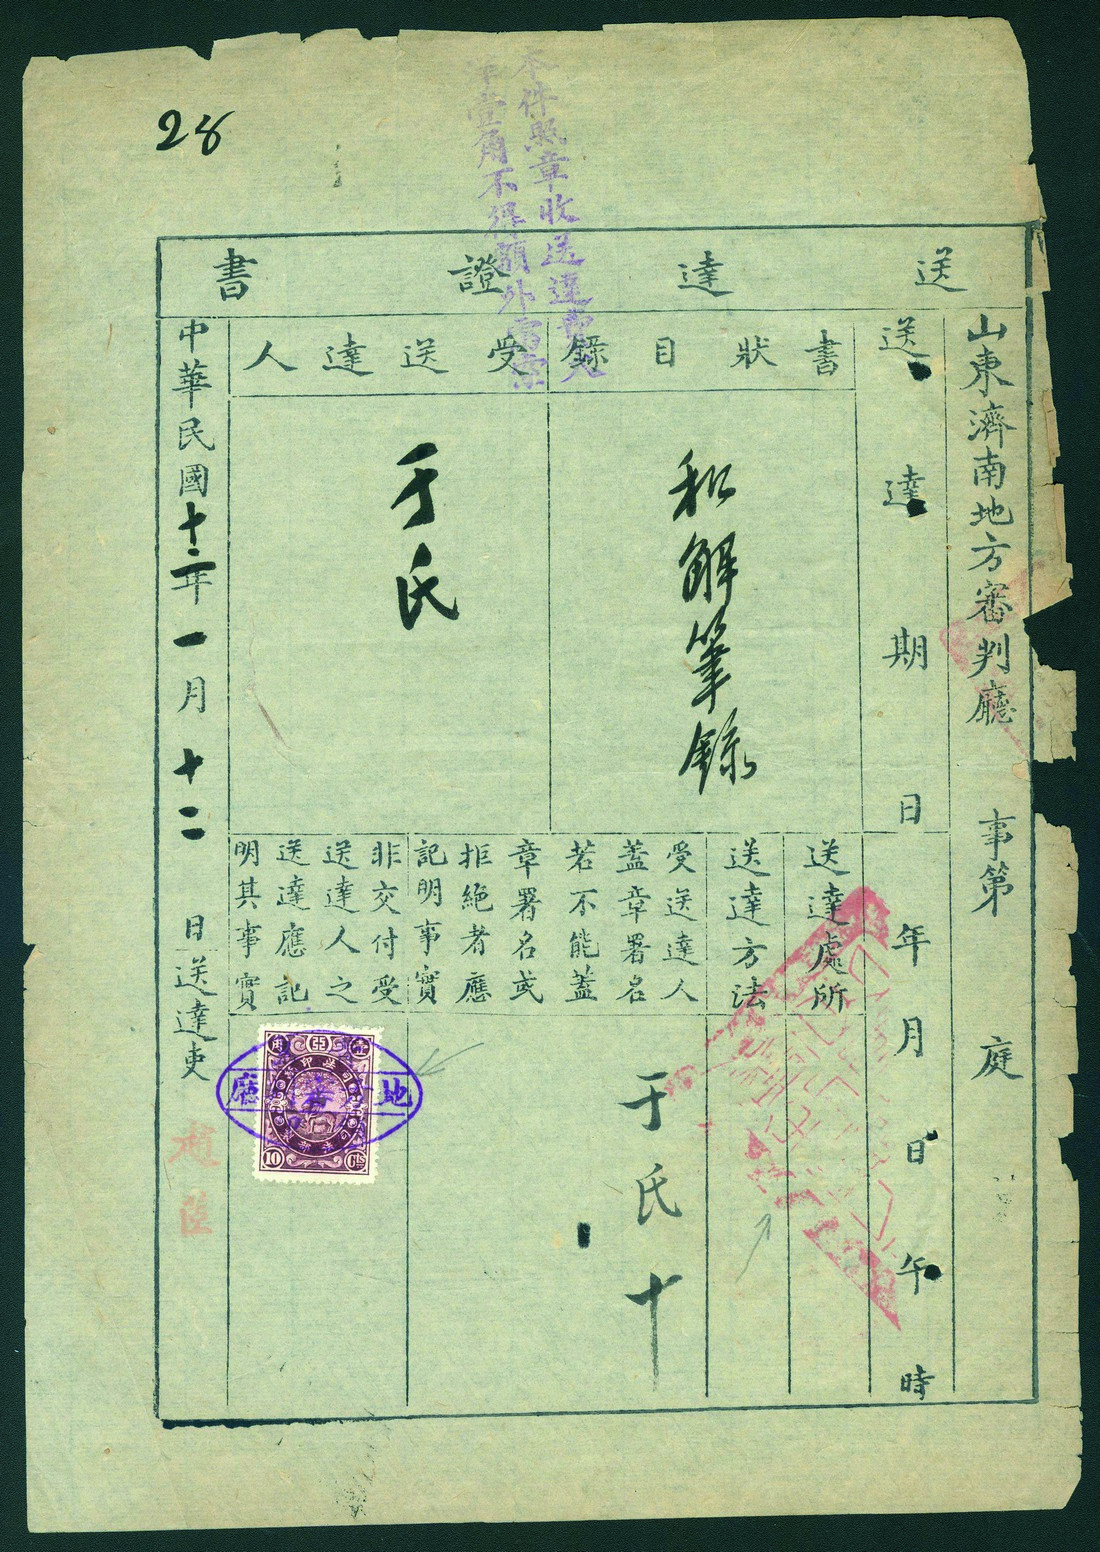 28
本件照章收送達費大
洋壹角不得額外需索
送達證書
山東濟南地方審判廳 事第 庭
送達期日 年 月 日 午 時
書狀目錄
和解筆錄
受送達人
于氏
送達處所
送達方法
受送達人
蓋章署名
若不能蓋
章署名或
拒絕者應
記明事實
于氏十
非交付受
送達人之
送達應記
明其事實
10
CTS
地
廳
中華民國十二年一月十二日送達吏
趙